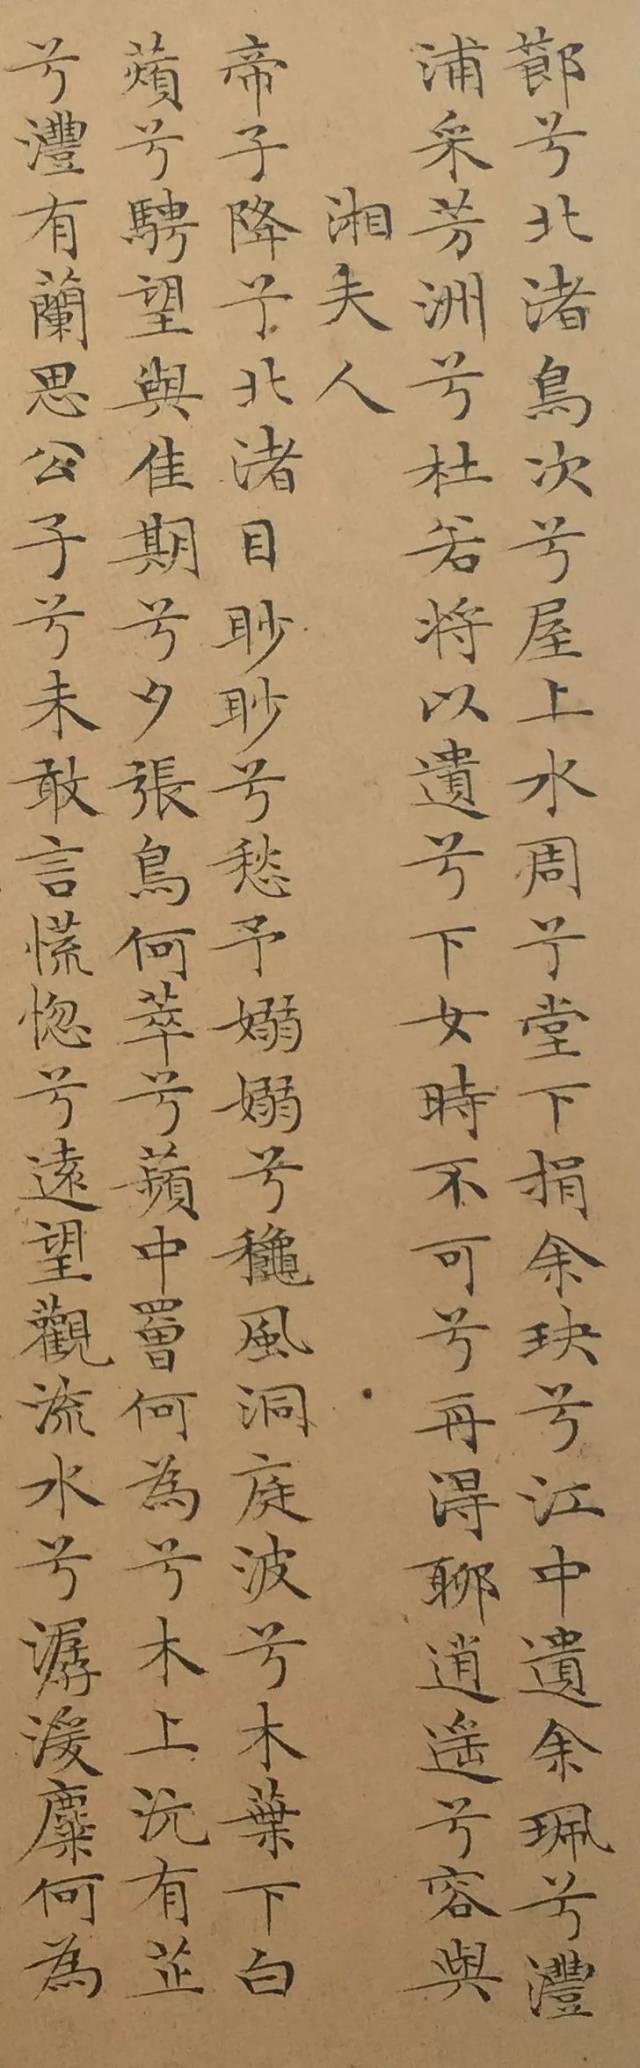 節兮北渚鳥次兮屋上水周兮堂下捐余玦兮江中遺余珮兮灃
浦采芳洲兮杜若將以遺兮下女時不可兮再得聊逍遥兮容與
湘夫人
帝子降兮北渚目眇眇兮愁予嫋嫋兮穐風洞庭波兮木葉下白
薠兮騁望與佳期兮夕張鳥何萃兮蘋中罾何為兮木上沅有芷
兮灃有蘭思公子兮未敢言慌惚兮遠望觀流水兮潺湲麋何為